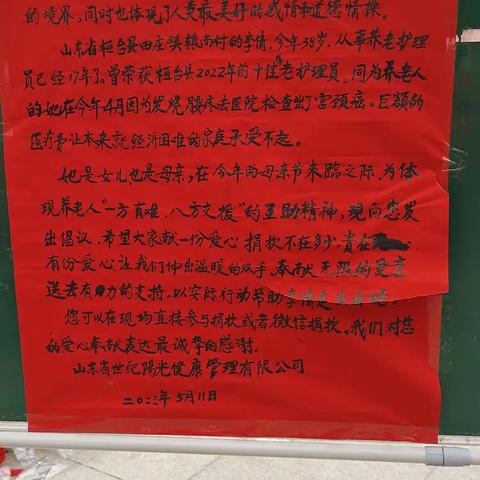 的境界，同时也体现了人类最美好的感情和道德情操。
山东省桓台县田庄镇粮南村的李情，今年38岁，从事养老护理
员已经17年了。曾荣获桓台县2022年的十佳老护理员。同为养老人
的她在今年4月因为发烧腰疼去医院检查出了宫颈癌。巨额的
医疗费让本来就经济困难的家庭承受不起。
她是女儿也是母亲，在今年的母亲节来临之际，为体
现养老人"一方有难，八方支援"的互助精神，现向您发
出倡议，希望大家献一份爱心 捐款不在多少，贵在
有份爱心让我们伸出温暖的双手，奉献无限的爱意
送去有力的支持，以实际行动帮助李情走出
您可以在现场直接参与捐款或者微信捐款。我们对您
的爱心奉献表达最诚挚的感谢。
山东省世纪陽光健康管理有限公司
二〇二三年5月11日